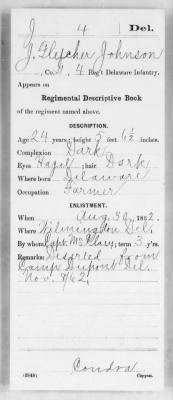 J. 4 Del.
J. Fletcher Johnson
, Co. 4 Reg't Delaware Infantry.
Appears on
Regimental Descriptive Book
of the regiment named above.
DESCRIPTION.
Age 24 years; height 5 feet 6½ inches.
Complexion Dark
Eyes Hazil ; hair Dark
Where born Delaware
Occupation Farmer
ENLISTMENT.
When Aug 30, 1862.
Where Wilmington Del.
By whom Capt. McClary; term 3 y'rs.
Remarks: Diserted from
Camp Dupont Del.
Nov. 8/62.
Condra
(384b) Copyist.